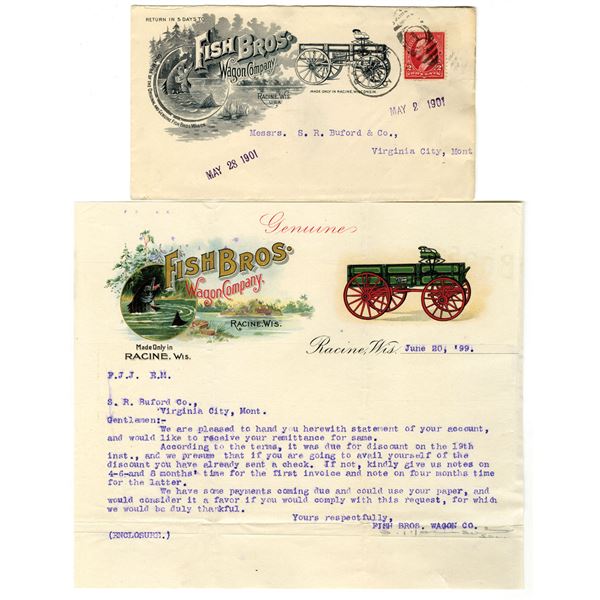 RETURN IN 5 DAYS TO
FISH BROS.
Wagon Company
RACINE, WIS.
U.S.A.
MADE ONLY IN RACINE, WISCONSIN.
MAY 2 1901
Messrs. S. R. Buford & Co.,
Virginia City, Mont
MAY 23 1901
Genuine
FISH BROS.
Wagon Company,
RACINE, WIS.
Made Only in
RACINE, WIS.
Racine, Wis. June 20, '99.
F.J.J. R.M.
S. R. Buford Co.,
Virginia City, Mont.
Gentlemen:-
We are pleased to hand you herewith statement of your account,
and would like to receive your remittance for same.
According to the terms, it was due for discount on the 19th
inst., and we presume that if you are going to avail yourself of the
discount you have already sent a check. If not, kindly give us notes on
4-6-and 8 months' time for the first invoice and note on four months time
for the latter.
We have some payments coming due and could use your paper, and
would consider it a favor if you would comply with this request, for which
we would be duly thankful.
Yours respectfully,
FISH BROS. WAGON CO.
(ENCLOSURE.)